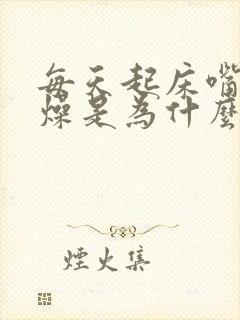 每天起床嘴
燥是为什麼
煙火集